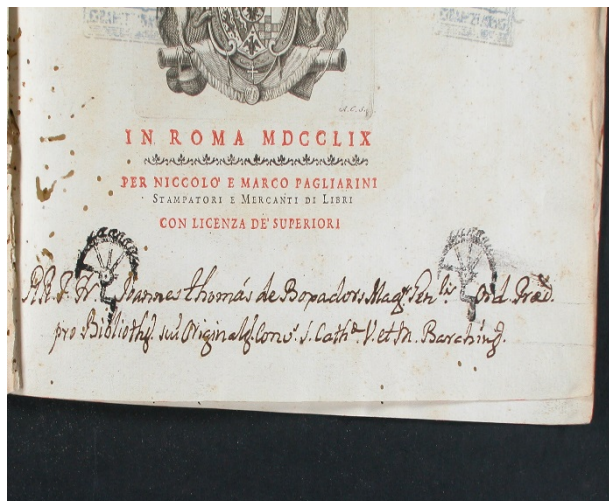 IN ROMA MDCCLIX
PER NICCOLO' E MARCO PAGLIARINI
STAMPATORI E MERCANTI DI LIBRI
CON LICENZA DE' SUPERIORI
Joannes thomás de Boxadors Mag.r Gen.lis Ord. Præd.
pro Biblioth. sui Original. Conv.s S. Cath.æ V. et M. Barching.